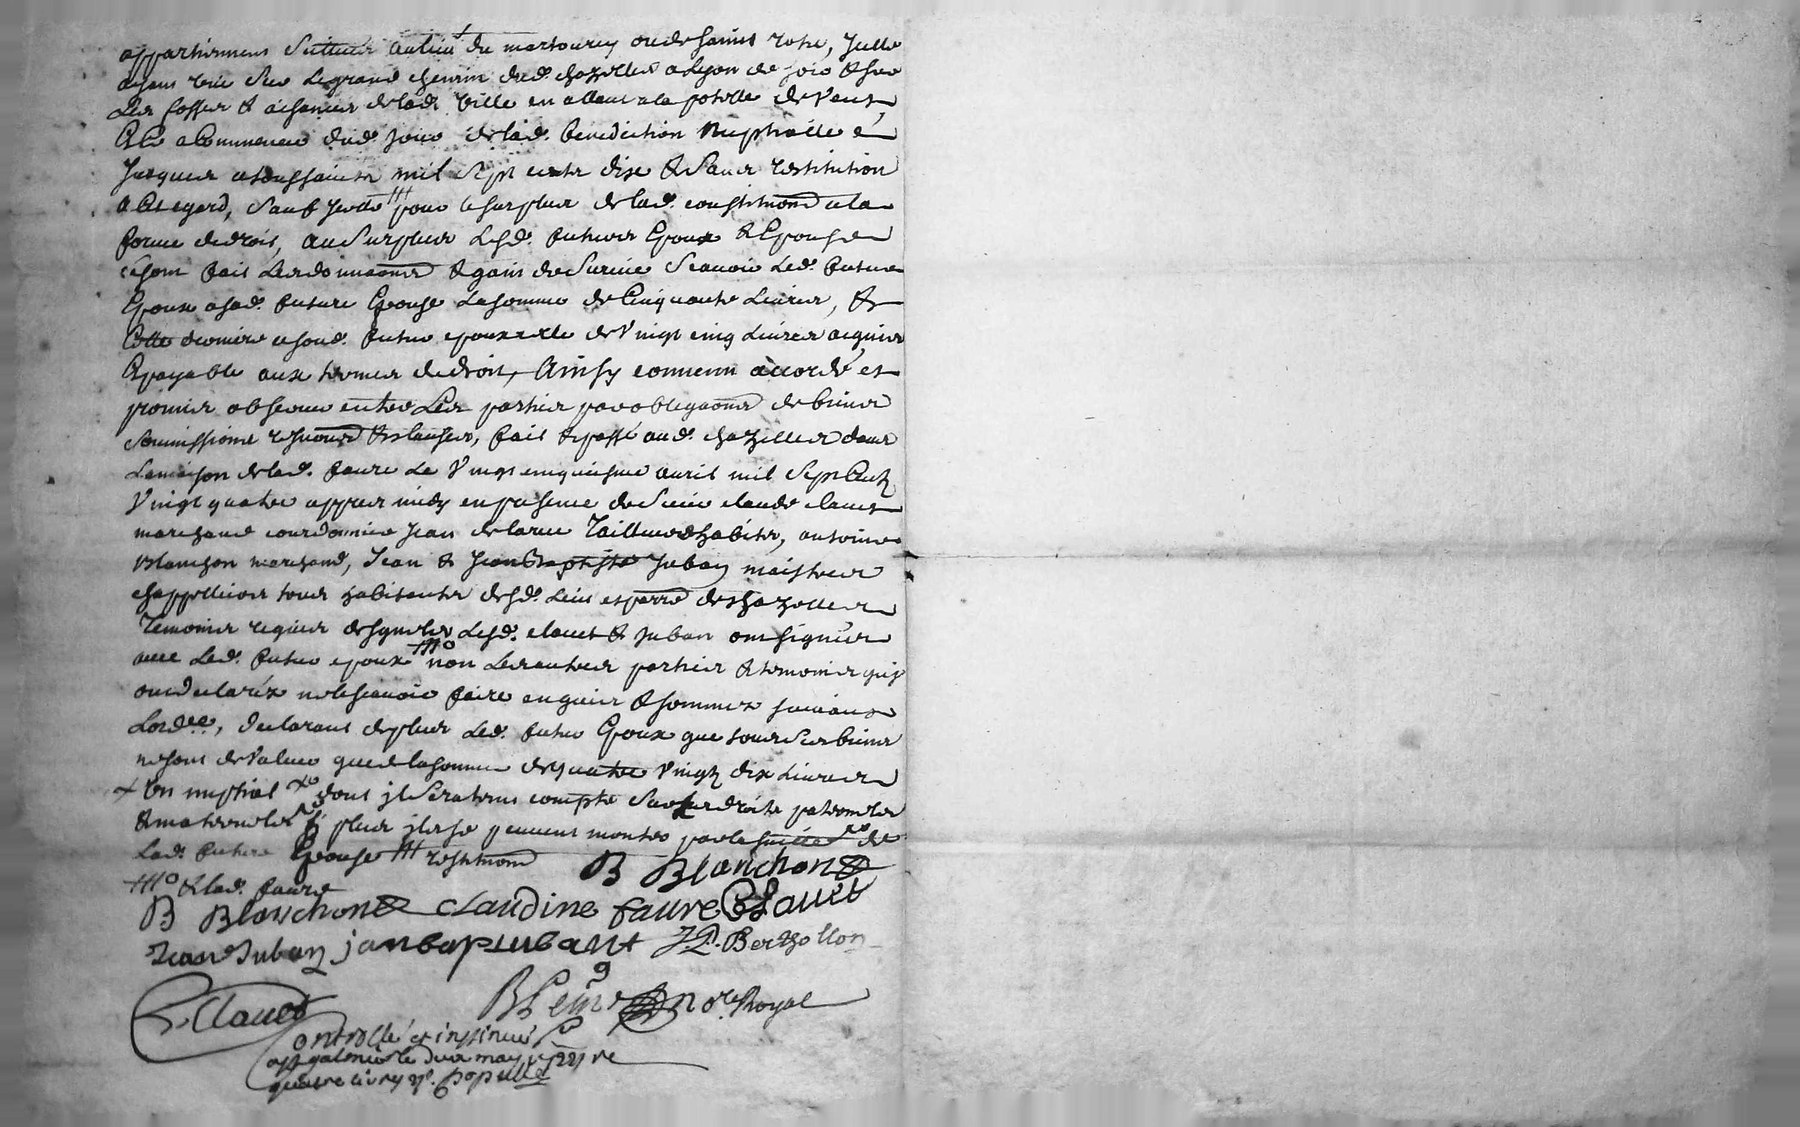 appartiennent scitues au lieu du martourey ou de saint roche, Jcelle
ayans veüe sur Le grand chemin dud. chazelles a Lyon de soir & sur
Les fosses & aisances de lad. ville en allant a la potelle de vent,
& ce a commencer dud. jour de lad. benediction Nuptialle &
Jusques a toussaintz mil sept centz dix & sans restitution
a cet egard, sauf Jcelle ᚋ pour le surplus de lad. constituon̄ a la
forme de droit, au surplus Lesd. futurs Epoux & Epouse
se sont fait Les donnaons & gain de survie Scavoir Led. futur
Epoux a sad. future Epouse La somme de Cinquante Livres, &
Cette derniere a sond. futur epoux celle de vingt cinq Livres acquise
& payable aux termes de droit, Ainsy convenu accordé et
promis observer entre Les parties par obligaons de biens
soumissions renonons & clauses, fait & passé aud. chazelles dans
La maison de lad. faure Le vingt cinquiesme avril mil sept centz
vingt quatre apprez midy en presence de Sieur claude clauet
marchand courdonnier Jean delarue Tailleur d'habitz, antoine
blanchon marchand, Jean & Jean Baptiste Juban maistres
chappelliers tous habitantz desd. Lieu et parre de chazelles
Temoins requis de signer Lesd. clauet & Juban ont signées
avec Led. futur epoux ᚋo non Les autres parties & temoins qui
ont declaréz ne le scavoir faire enquis & sommez suivant
Lordce, declarant de plus Led. futur Epoux que tous ses biens
ne sont de valeur que de la somme de quatre vingtz dix Livres
+ En nuptial xo dont jl sera tenu compte sur ses droits paternelz
& maternelz si plus jlz se peuvent monter par le suitte xo de
Lad. future Epouse ᚋ restituon̄
ᚋo & lad. faure
B Blanchon
B Blanchon claudine faure C Clauet
Jean Juban jan bap iubant J. P. Berthollon
C. Clauet
nore Royal
Controllé et insinué
a St galmier le deux may 1724 re
quatre livres